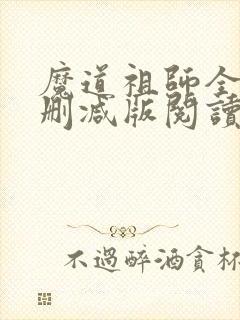 魔道祖師全
刪減版閱讀
不過醉酒貪杯